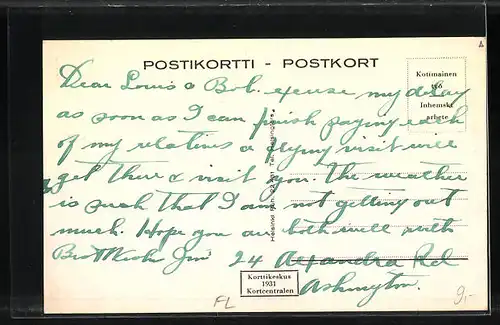 POSTIKORTTI - POSTKORT
Kotimainen
työ
Inhemskt
arbete
Dear Louis & Bob. excuse my delay
as soon as I can finish paying each
of my relatives a flying visit will
get there & visit you. The weather
is such that I am not getting out
much. Hope you are both well with
Best Jim 24 Alexandra Rd
Ashington.
Korttikeskus
1931
Kortcentralen
FL
9,-